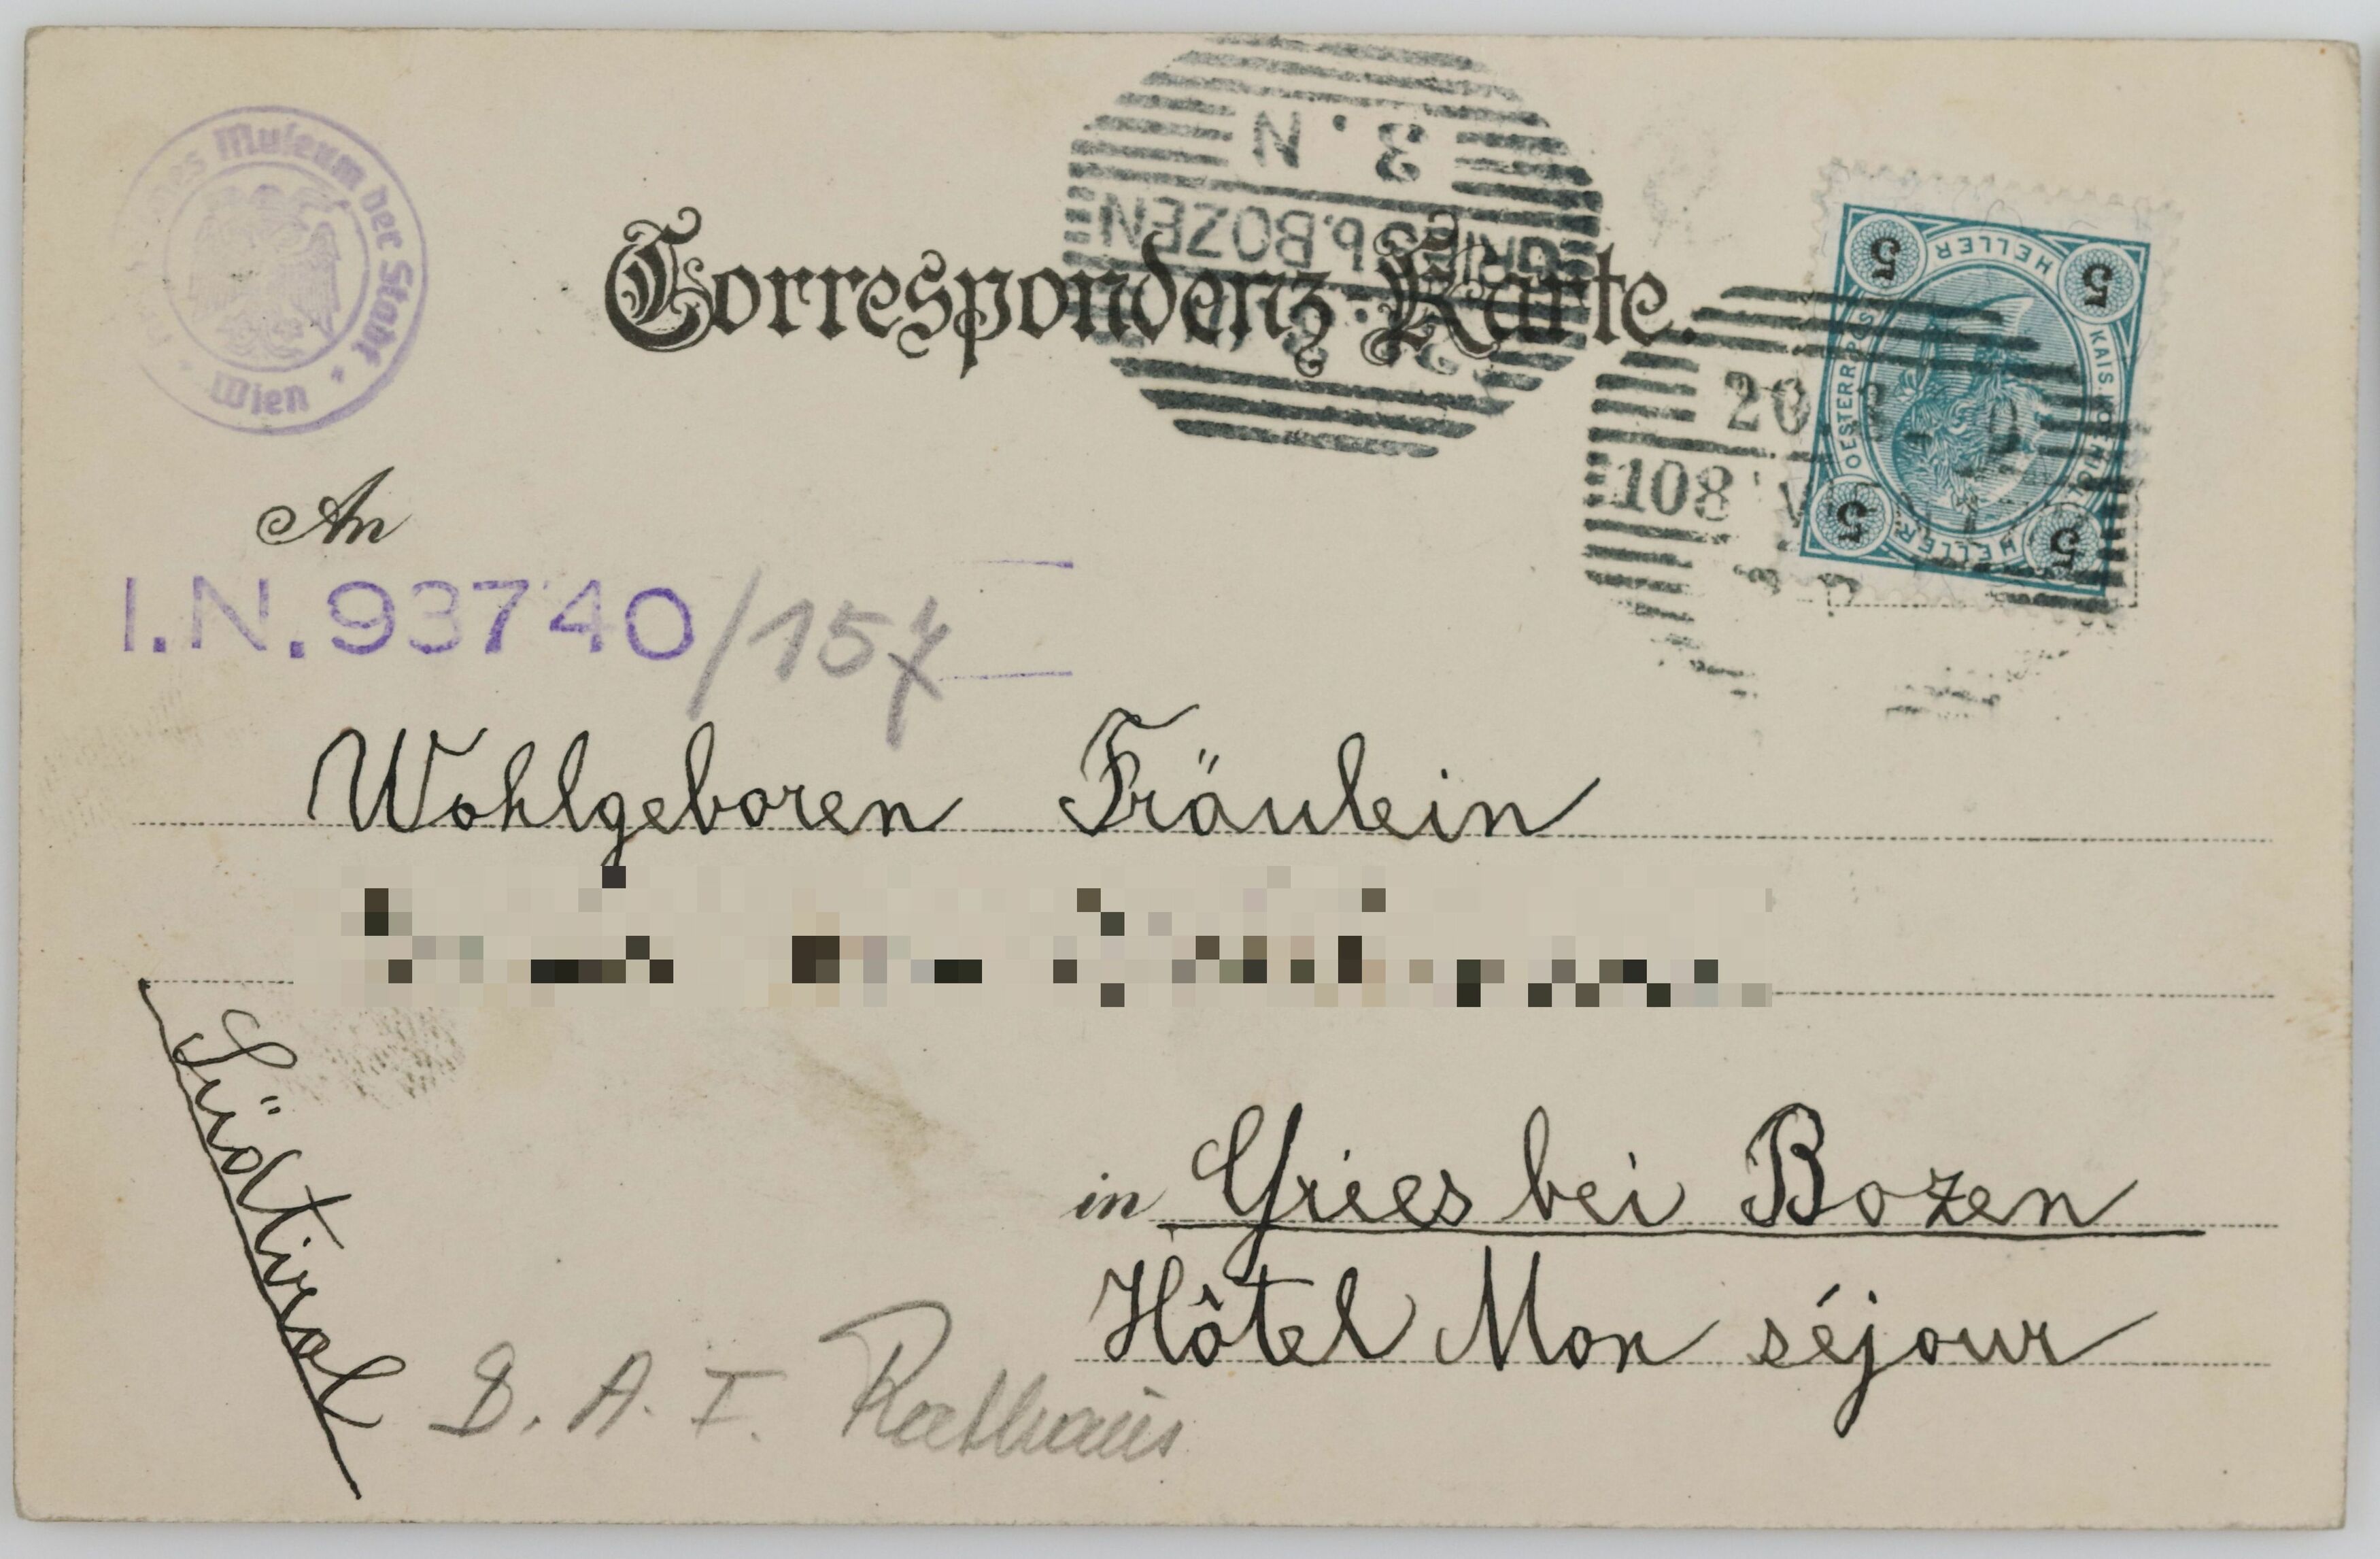 Museum der Stadt
Wien
3. N
GRIES b. BOZEN
Correspondenz-Karte.
5 HELLER 5
KAIS.
OESTERR.
5 HELLER 5
20
108
An
I.N. 93740/157
Wohlgeboren Fräulein
Südtirol
in Gries bei Bozen
Hôtel Mon séjour
A. I. Rathaus